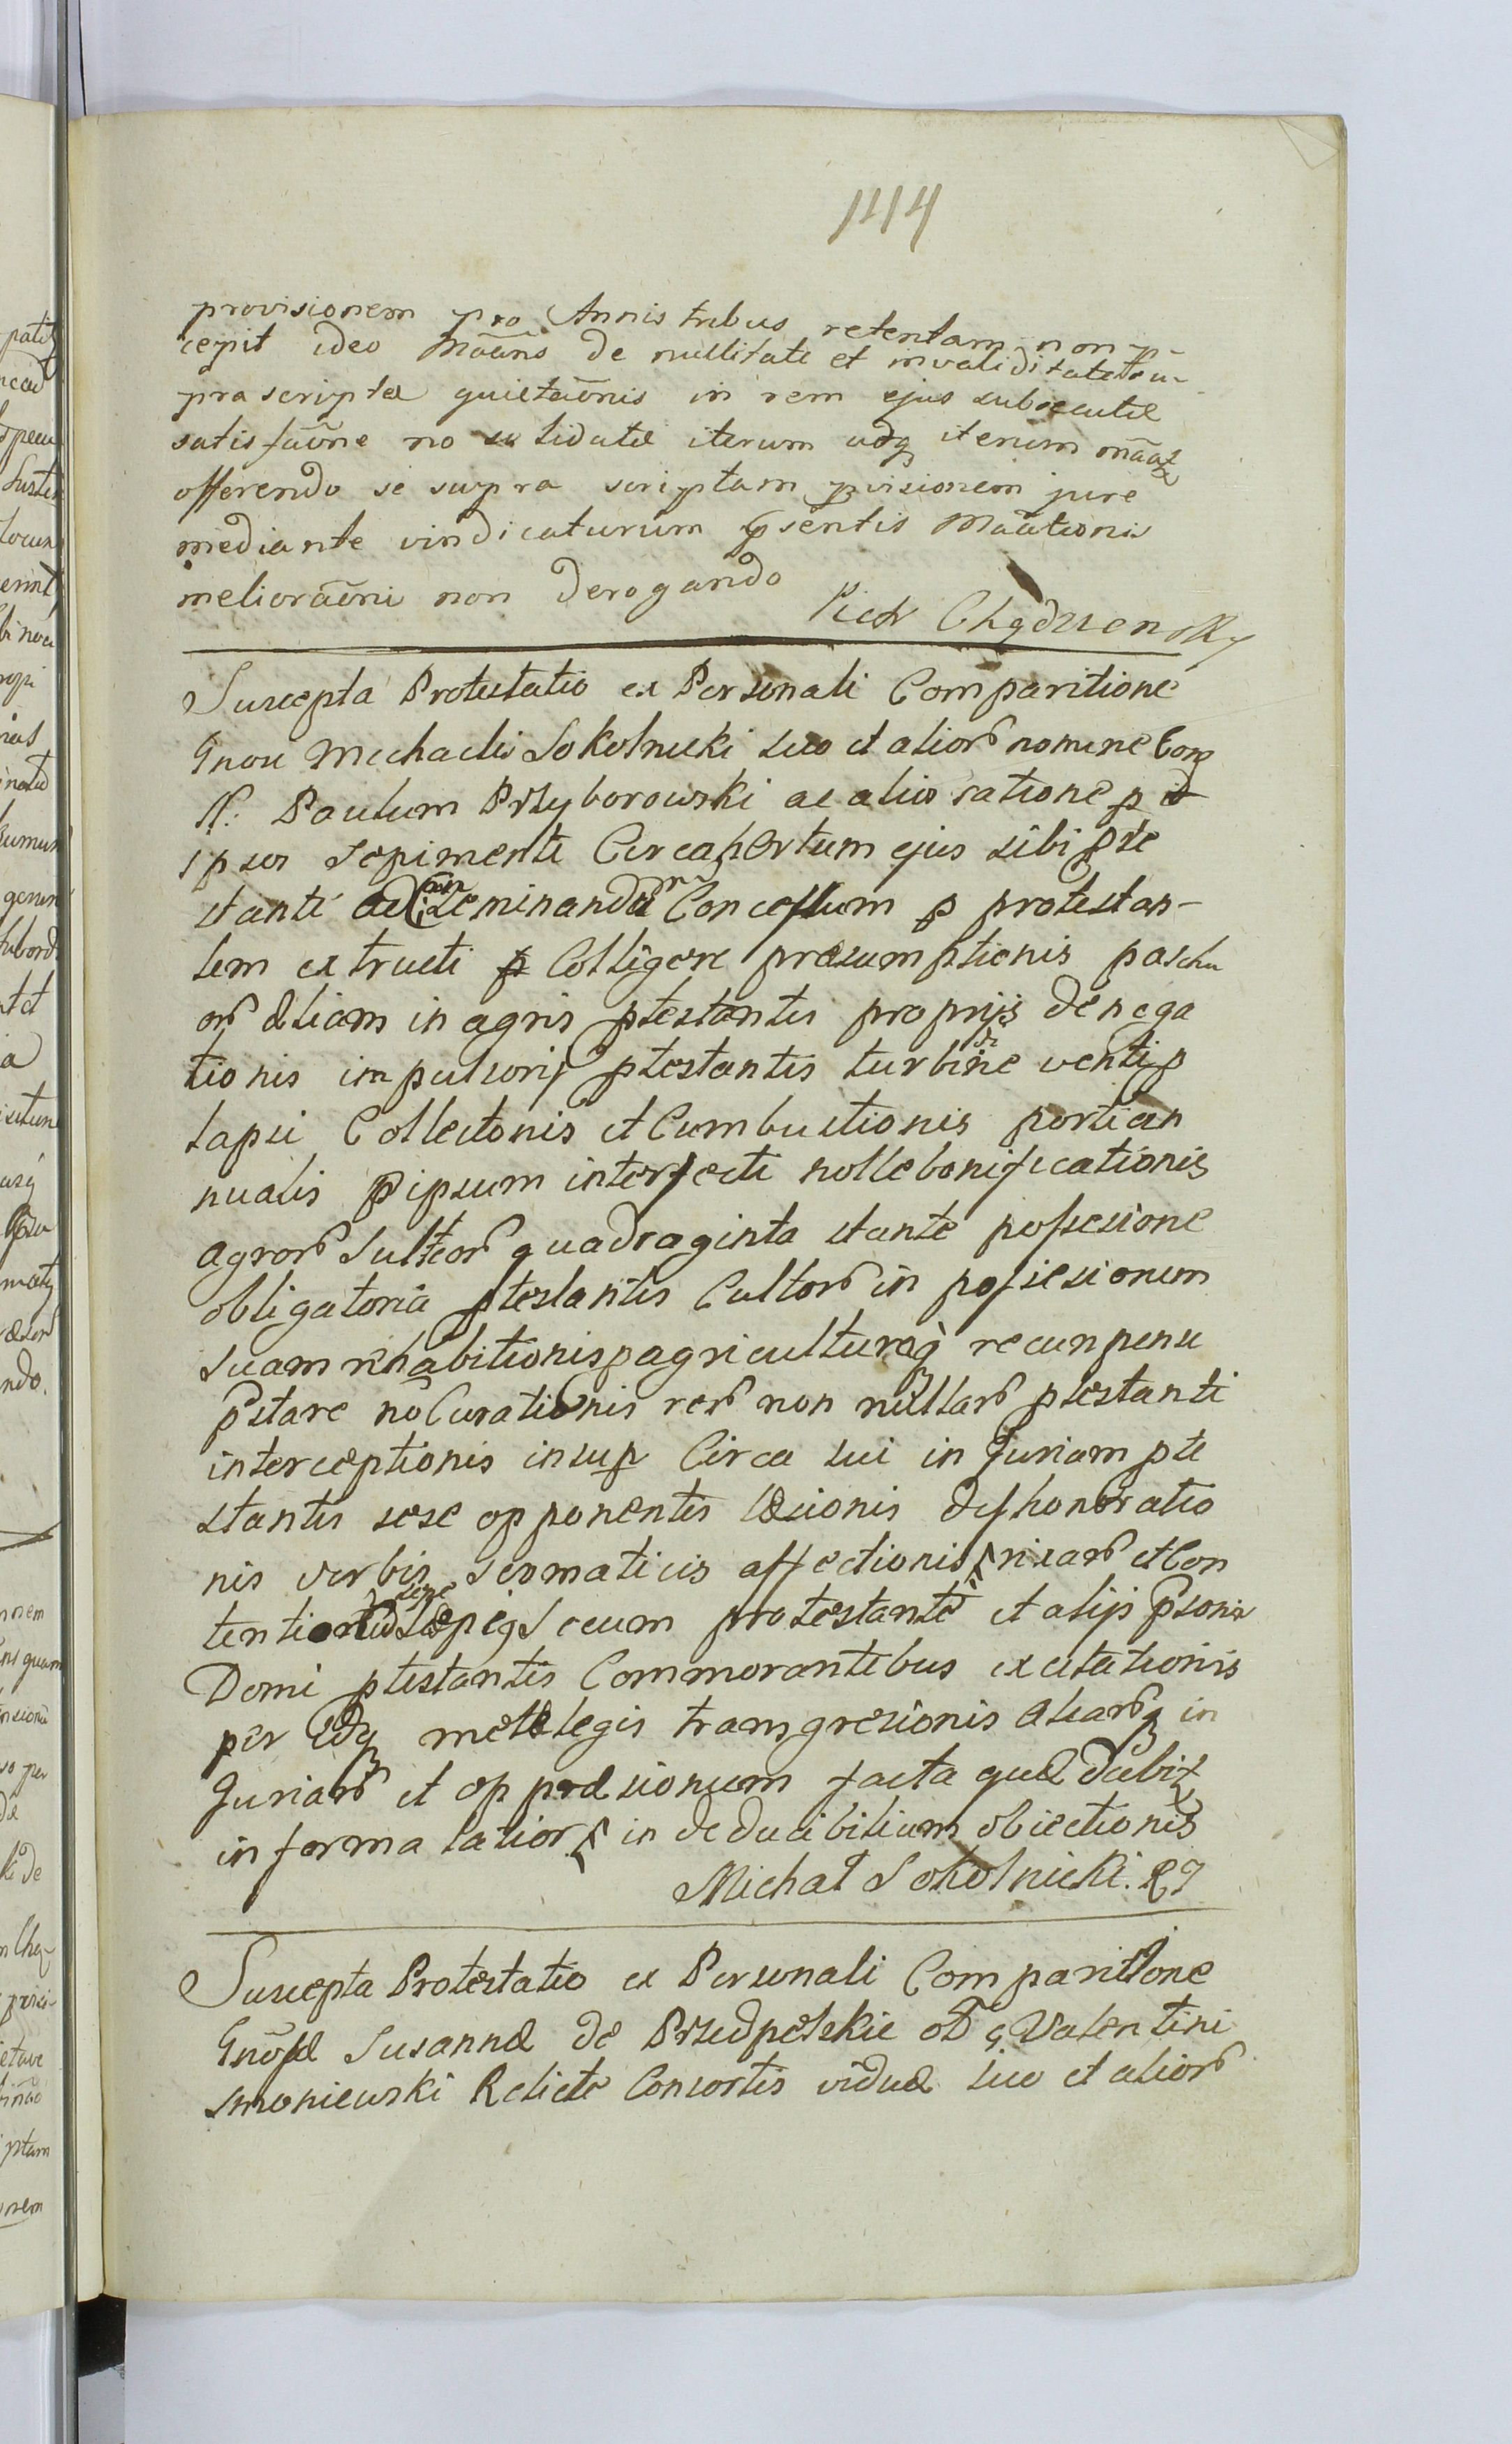 1114
provisionem pro Annis tribus retentam non
cepit ideo Mãns de nullitate et invaliditate
præscriptæ quietãonis in rem ejus subsecutæ
satisfãone no solidatæ iterum adq iterum mãat
offerendo se supra scriptam pvisionem jure
mediante vindicaturum psentis Maãtionis
meliorãoni non derogando
Suscepta Protestatio ex Personali Comparitione
Gnosi Michaelis Sokolnicki suo et alior nomine Con
N: Paulum Przyborowski ac alios ratione p id
ipsos sepimenti Circa hortum ejus sibi pte
stanti ad seminandum Concessum p protestan-
tem extructi p Colligere præsumptionis pascu
or etiam in agris ptestantis proprijs denega
tionis impulsoris ptestantis turbine venti p
lapsi Collectonis et Cumbustionis porti an
nualis p ipsum interfecti nolle bonificationis
agror sulcor quadraginta stante possesione
obligatoria ptestantis Cultor in possesionum
suam inhabitionis p agriculturaq recunpensa
pstare no Curationis rer non nullar ptestanti
interceptionis insup Circa sui in Juriam pte
stantis sese opponentis læsionis dishonoratio
nis verbis scomaticis affectionis rixar et Con
tentionu sæpiq secum protestante et alijs psonis
Domi ptestantis Commorantibus excitationis
per idq metæ legis transgresionis aliarq in
Juriar et oppræsionum facta quæ dabit
in forma latiori in deducibilium obiectionis
Michał Sokolnicki
Suscepta Protestatio ex Personali Comparitione
Gnosæ Susannæ de Przedpełskie Valentini
Smoniewski Relictæ Consortis viduæ suo et alior